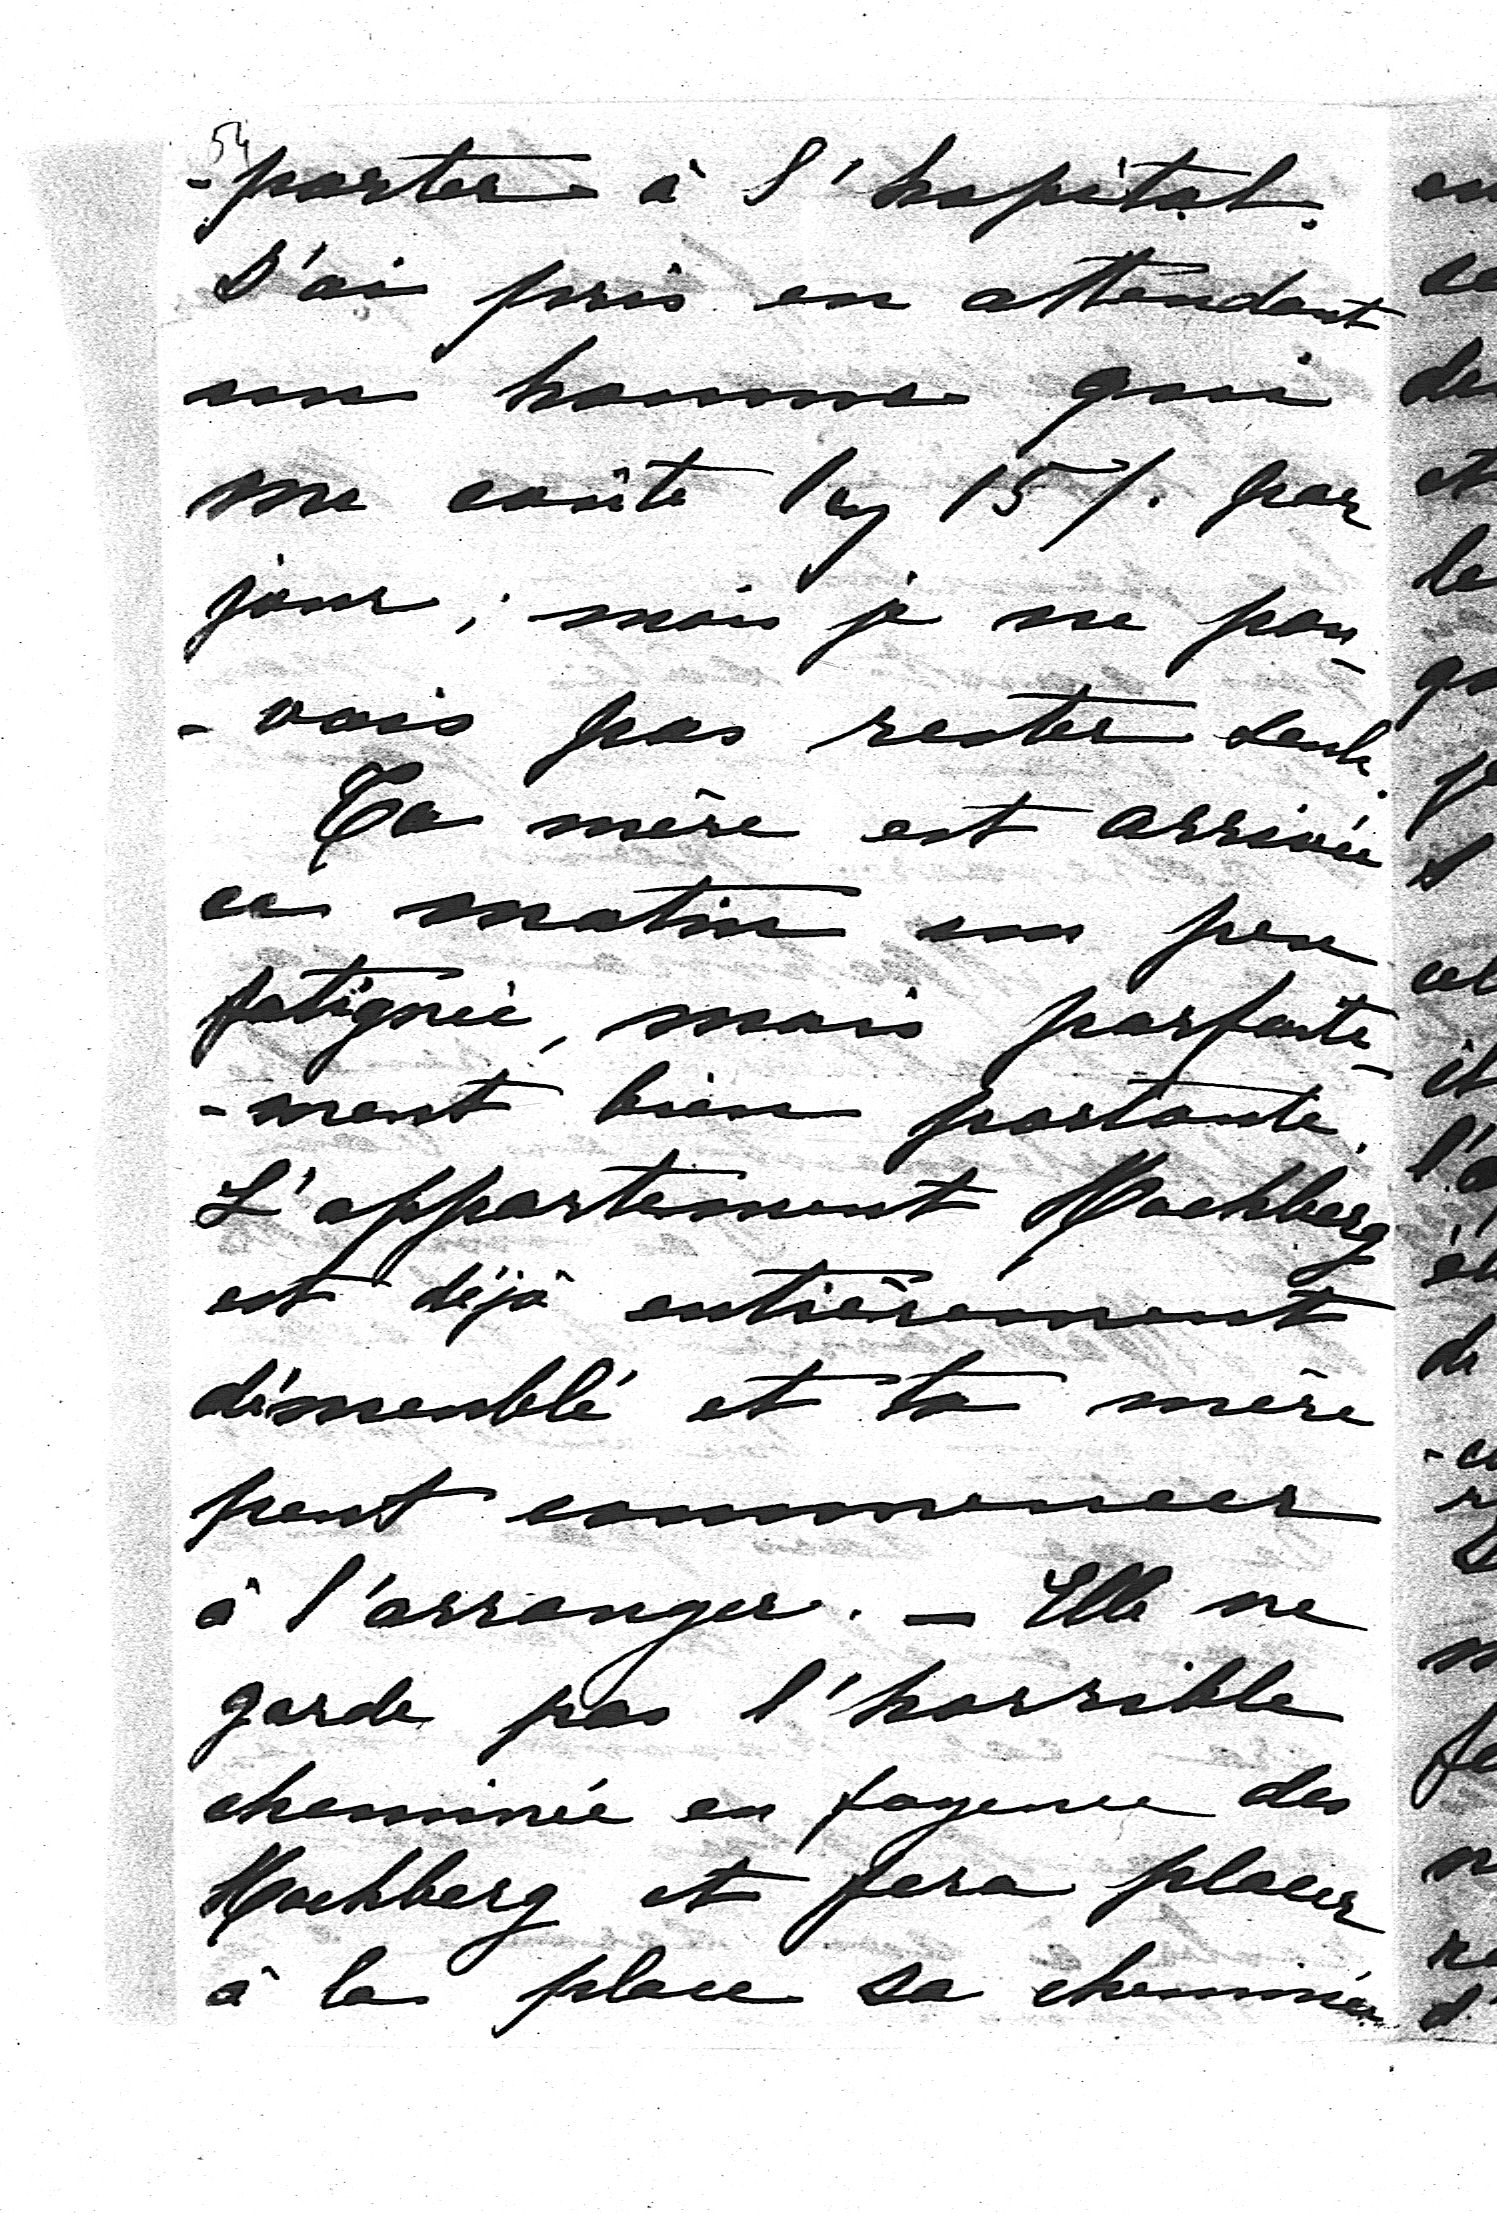 54
-porter à l'hopital.
J'ai pris en attendant
un homme qui
me coûte 15 f. par
jour; mais je ne pou-
-vais pas rester seule.
Ta mère est arrivée
ce matin un peu
fatiguée, mais parfaite-
-ment bien portante.
L'appartement Hochberg
est déjà entièrement
démeublé et ta mère
peut commencer
à l'arranger. — Elle ne
garde pas l'horrible
cheminée en fayence des
Hochberg et fera placer
à la place sa cheminée